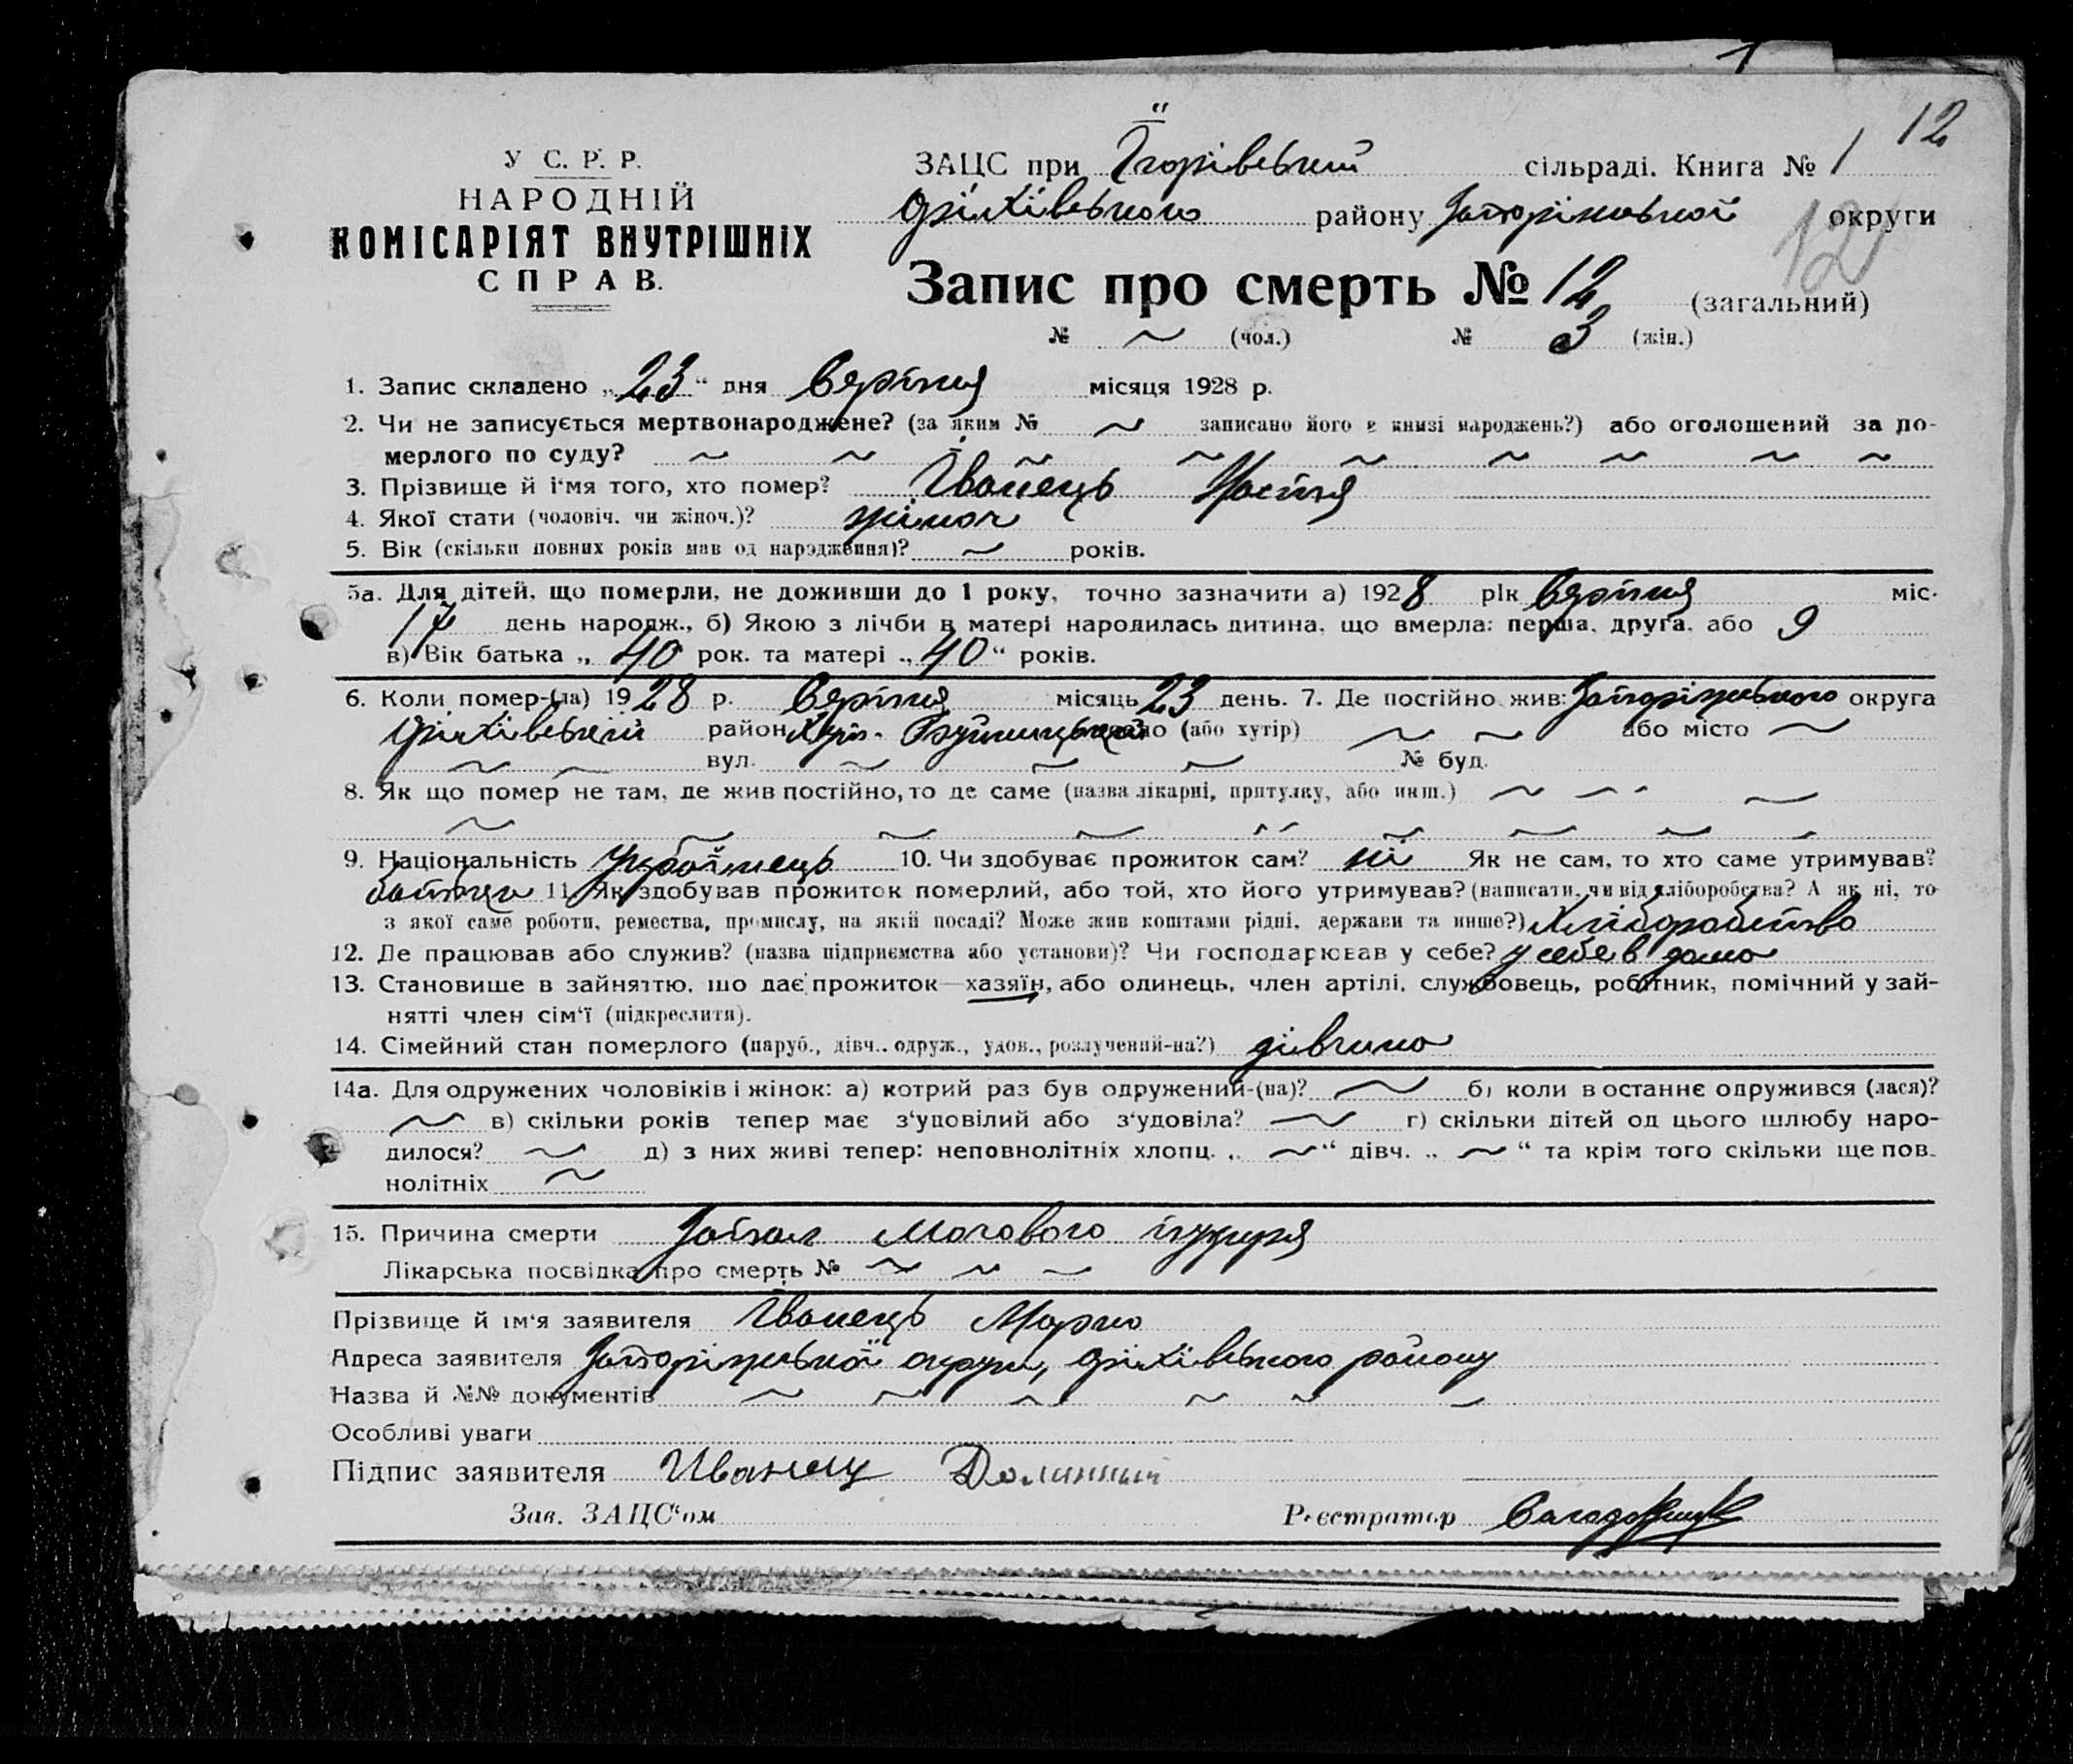 12
У С. Р. Р.
НАРОДНІЙ
КОМІСАРІЯТ ВНУТРІШНІХ
СПРАВ.
ЗАЦС при Ігорівський сільраді. Книга № 1
Оріхівського району Запоріжської округи
12
Запис про смерть № 12 (загальний)
№ ~ (чол.) № 3 (жін.)
1. Запис складено „23“ дня Серпня місяця 1928 р.
2. Чи не записується мертвонароджене? (за яким № ~ записано його в книзі народжень?) або оголошений за по-
мерлого по суду? ~ ~ ~ ~ ~ ~ ~ ~ ~
3. Прізвище й і'мя того, хто помер? Іванець Настя
4. Якої стати (чоловіч. чи жіноч.)? жіноч
5. Вік (скільки повних років мав од народження)? ~ років.
5а. Для дітей, що померли, не доживши до 1 року, точно зазначити а) 1928 рік Серпня міс.
17 день народж., б) Якою з лічби в матері народилась дитина, що вмерла: перша, друга, або 9
в) Вік батька „40 рок. та матері „40“ років.
6. Коли помер-(ла) 1928 р. Серпня місяць 23 день. 7. Де постійно жив: Запоріжського округа
Оріхівський район Хут. село (або хутір) ~ ~ або місто ~
~ ~ вул. ~ ~ ~ № буд.
8. Як що помер не там, де жив постійно, то де саме (назва лікарні, притулку, або инш.) ~ ~ ~
~ ~ ~ ~ ~ ~ ~ ~ ~
9. Національність Українець 10. Чи здобуває прожиток сам? ні Як не сам, то хто саме утримував?
батько 11. Як здобував прожиток померлий, або той, хто його утримував? (написати, чи від хліборобства? А як ні, то
з якої саме роботи, ремества, промислу, на якій посаді? Може жив коштами рідні, держави та инше?) Хліборобство
12. Де працював або служив? (назва підприємства або установи)? Чи господарював у себе? у себе в дома
13. Становище в зайняттю, що дає прожиток—хазяїн, або одинець, член артілі, службовець, робітник, помічний у зай-
нятті член сім'ї (підкреслити).
14. Сімейний стан померлого (паруб., дівч., одруж., удов., розлучений-на?) дівчина
14а. Для одружених чоловіків і жінок: а) котрий раз був одружений-(на)? ~ б) коли в останнє одружився (лася)?
~ в) скільки років тепер має з'удовілий або з'удовіла? ~ г) скільки дітей од цього шлюбу наро-
дилося? ~ д) з них живі тепер: неповнолітніх хлопц. „~“ дівч. „~“ та крім того скільки ще пов-
нолітніх ~
15. Причина смерти Запал Мочового пузиря
Лікарська посвідка про смерть № ~ ~ ~
Прізвище й ім'я заявителя Іванець Марко
Адреса заявителя Запоріжської округи, Оріхівського району
Назва й №№ документів ~ ~ ~ ~ ~ ~
Особливі уваги
Підпис заявителя Иванец
Зав. ЗАЦС'ом Реєстратор